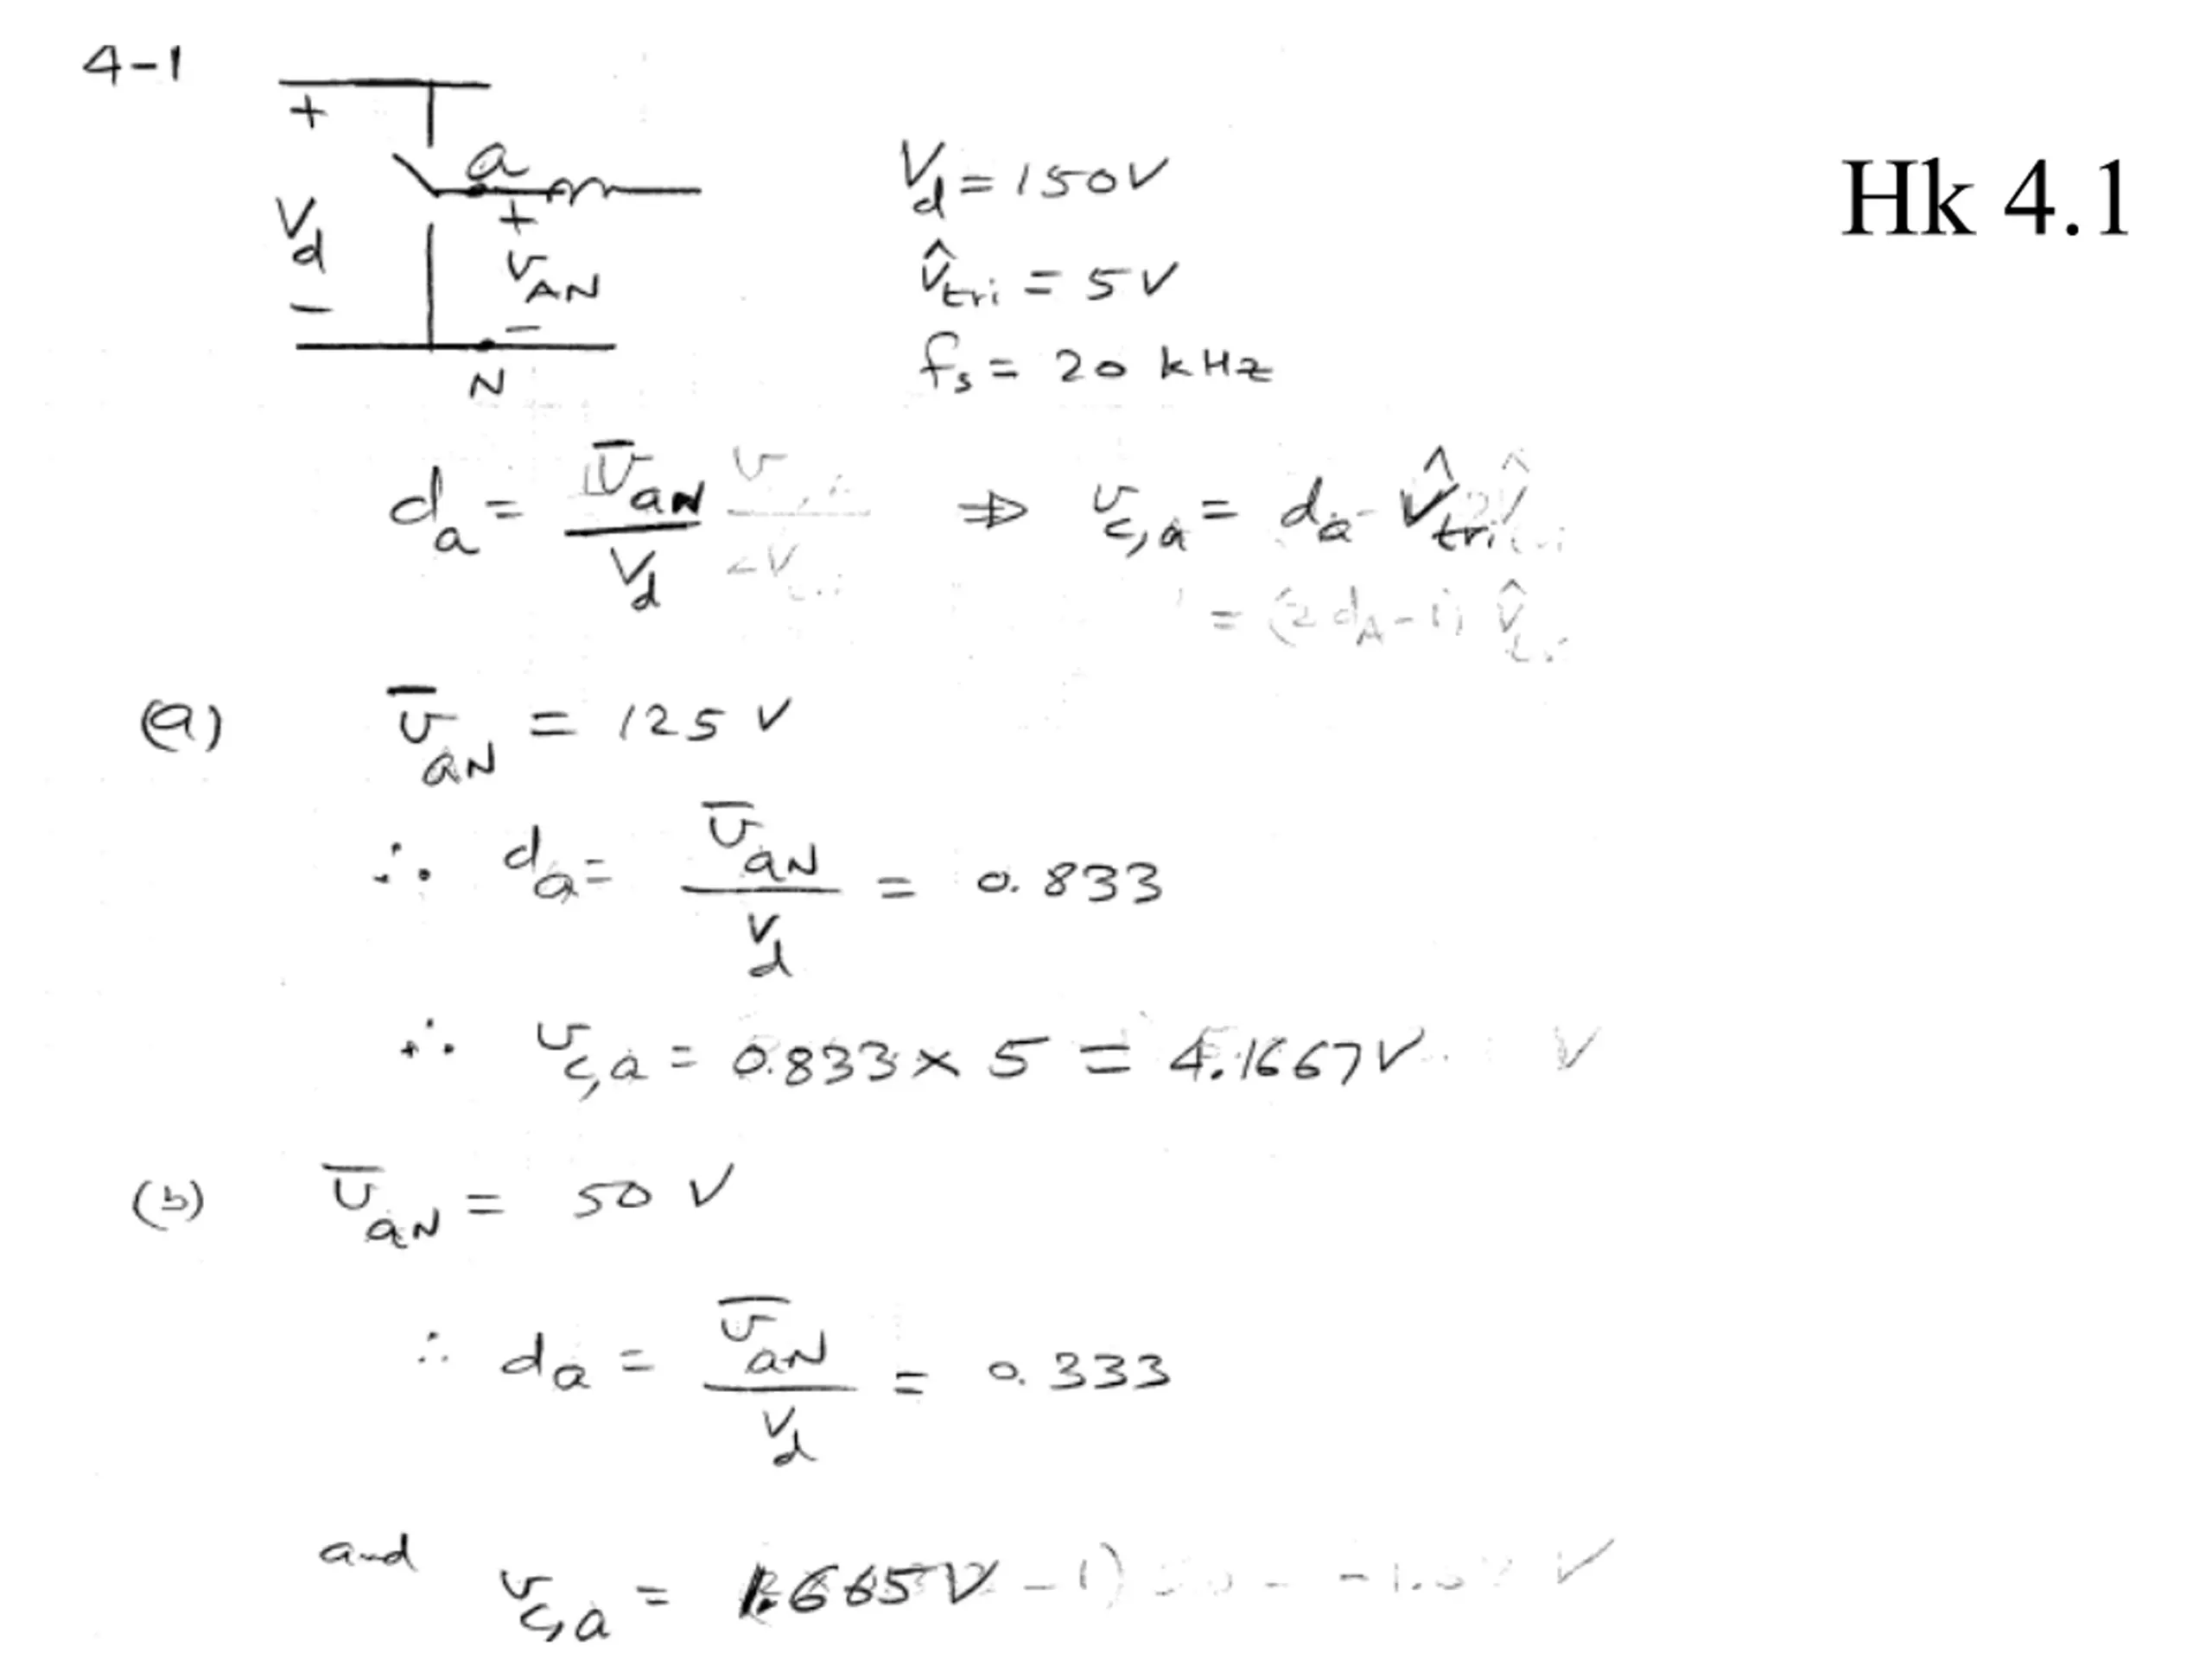 4-1
Hk 4.1
+
a
V_d = 150V
V_d
+
v_AN
V̂_tri = 5V
−
−
f_s = 20 kHz
N
d_a = v̄_aN / V_d ⇒ v_c,a = d_a V̂_tri
= (2d_A - 1) V̂
(a) v̄_aN = 125 V
∴ d_a = v̄_aN / V_d = 0.833
∴ v_c,a = 0.833 × 5 = 4.1667V V
(b) v̄_aN = 50 V
∴ d_a = v̄_aN / V_d = 0.333
and v_c,a = 1.665V - 1) V